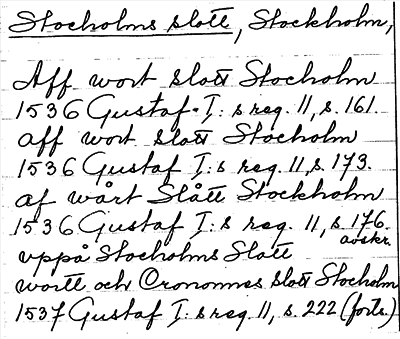 Stocholms slott, Stockholm,
Aff wort slott Stocholm
1536 Gustaf I:s reg. 11, s. 161.
aff wort slott Stocholm
1536 Gustaf I:s reg. 11, s. 173.
af wårt Slått Stockholm
1536 Gustaf I:s reg. 11, s. 176.
avskr.
uppå Stocholms Slott
wortt och Cronones slott Stocholm
1537 Gustaf I:s reg. 11, s. 222 (forts.)